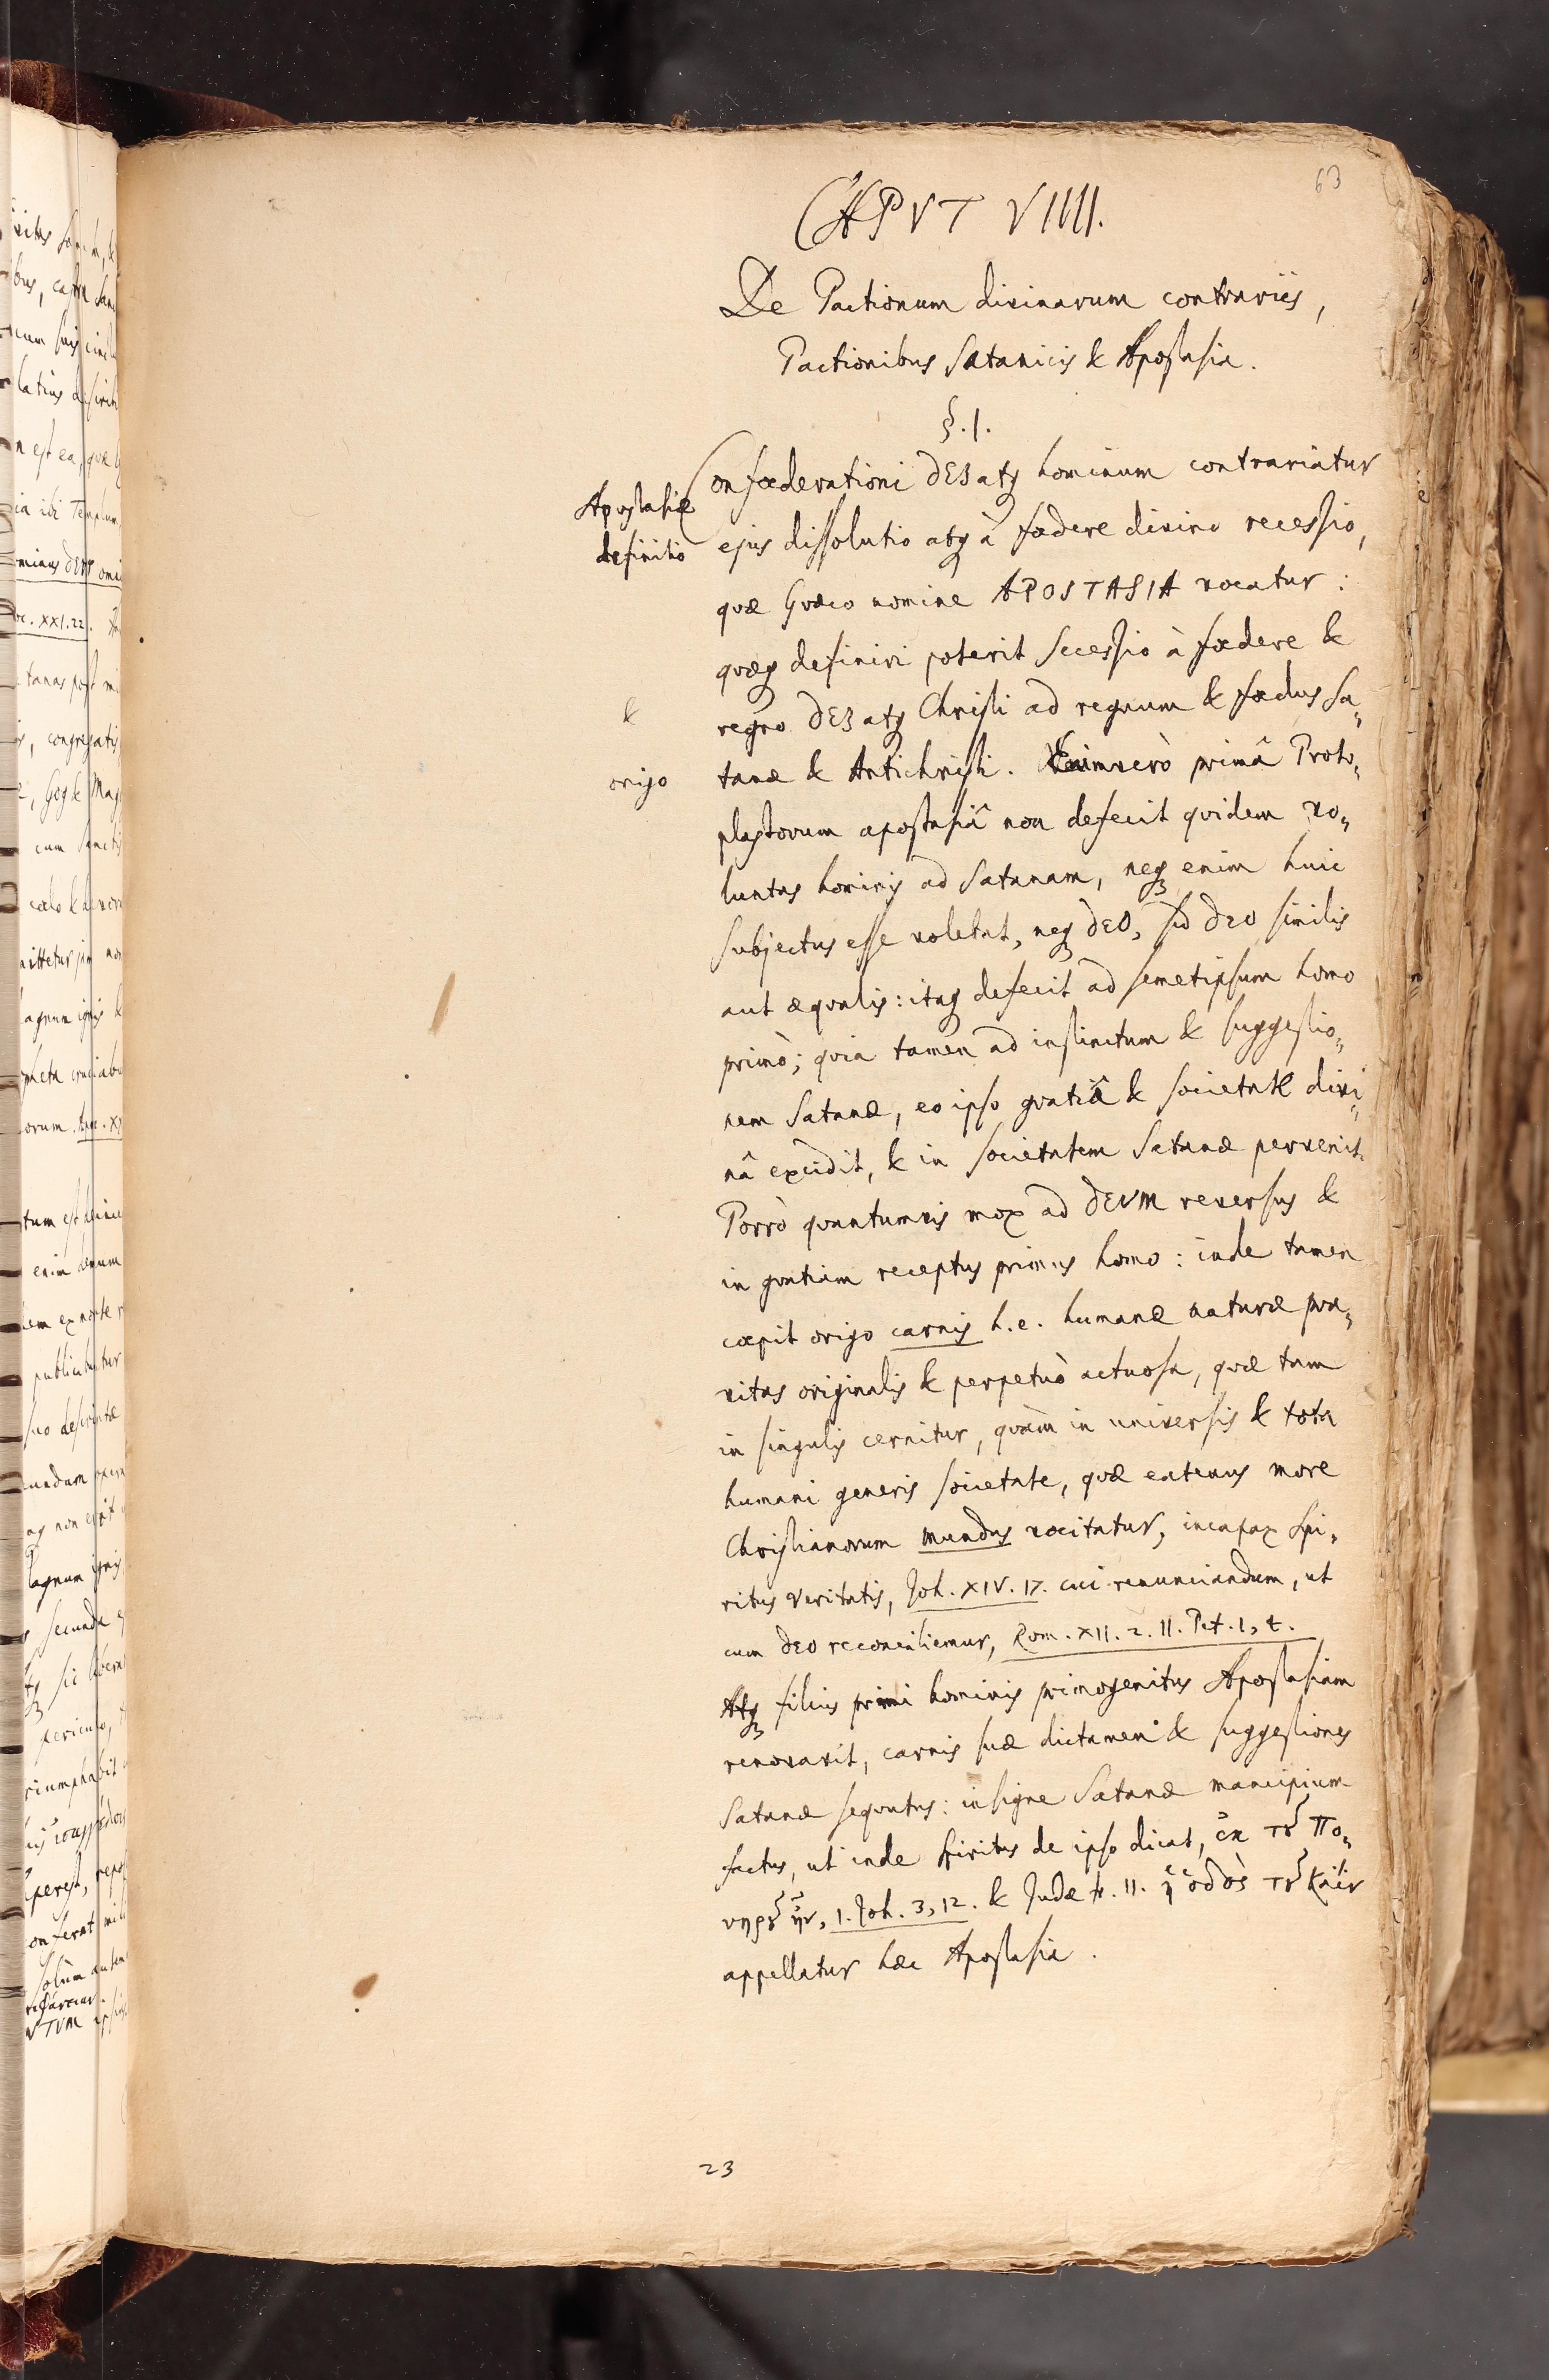 63
CAPVT VIIII.
De Pactionum divinarum contrariis,
Pactionibus Satanicis & Apostasia.
§.1.
Confœderationi DEI atq hominum contrariatur
Apostasiæ
definitio
ejus dissolutio atq à fœdere divino recessio,
quæ Græco nomine APOSTASIA vocatur:
quæq definiri poterit Secessio à fœdere &
regno DEI atq Christi ad regnum & fœdus Sa„
&
origo
tanæ & Antichristi. Enimverò primâ Proto„
plastorum apostasiâ non defecit quidem vo„
luntas hominis ad Satanam, neq enim huic
subjectus esse volebat, neq DEO, sed DEO similis
aut æqvalis: itaq defecit ad semetipsum homo
primò; qvia tamen ad instinctum & suggestio„
nem Satanæ, eo ipso gratiâ & societate divi„
nâ excidit, & in societatem Satanæ pervenit.
Porrò qvantumvis mox ad DEUM reversus &
in gratiam receptus primus homo: inde tamen
cœpit origo carnis h.e. humanæ naturæ pra„
vitas originalis & perpetuò actuosa, qvæ tam
in singulis cernitur, qvàm in universis & tota
humani generis societate, qvæ eatenus more
Christianorum mundus vocitatur, incapax Spi„
ritus veritatis, Joh. XIV. 17. cui renunciandum, ut
cum DEO reconciliemur, Rom. XII. 2. II. Pet. 1, 4.
Atq filius primi hominis primogenitus Apostasiam
renovavit, carnis suæ dictamen & suggestiones
Satanæ seqvutus: insigne Satanæ mancipium
factus, ut inde Spiritus de ipso dicat, ἐκ τȣ͂ πο„
νηρȣ͂ ἦν, 1. Joh. 3, 12. & Judæ v. 11. ἡ ὁδὸς τȣ͂ Κάϊν
appellatur hæc Apostasia.
23